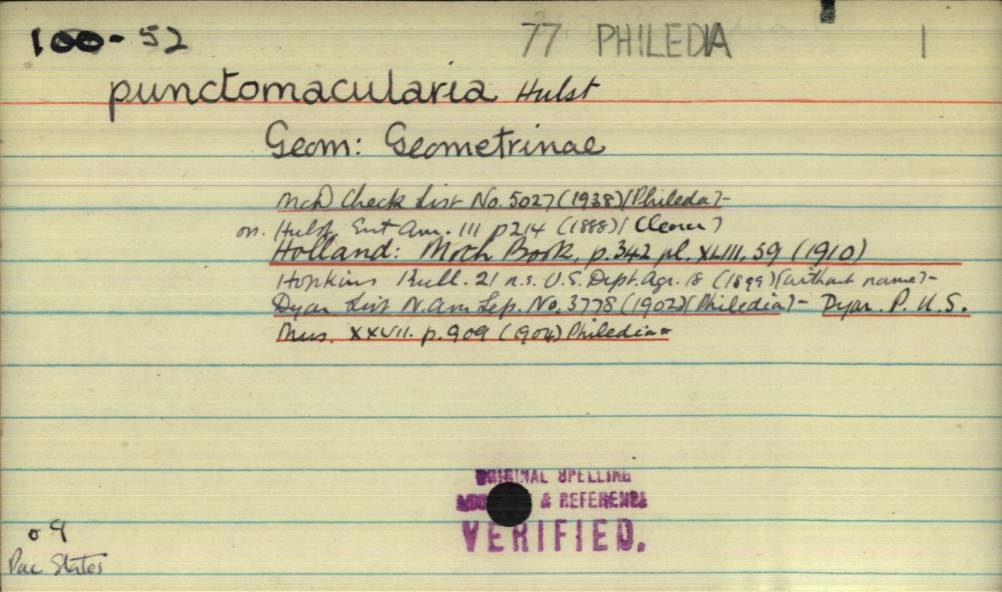 100-52 77 PHILEDIA 1
punctomacularia Hulst
Geom: Geometrinae
McD Check List No. 5027 (1938) (Phileda)-
on. Hulst, Ent Am. III p214 (1888) ( Cleora )
Holland: Moth Book, p.342 pl. XLIII. 59 (1910)
Hopkins Bull. 21 n.s. U.S. Dept. Agr. 18 (1899) (without name)-
Dyar List N. Am Lep. No. 3778 (1902) (Philedia)- Dyar. P. U.S.
Mus. XXVII. p.909 (1904) Philedia
ORIGINAL SPELLING
& REFERENCE
VERIFIED.
Pac States